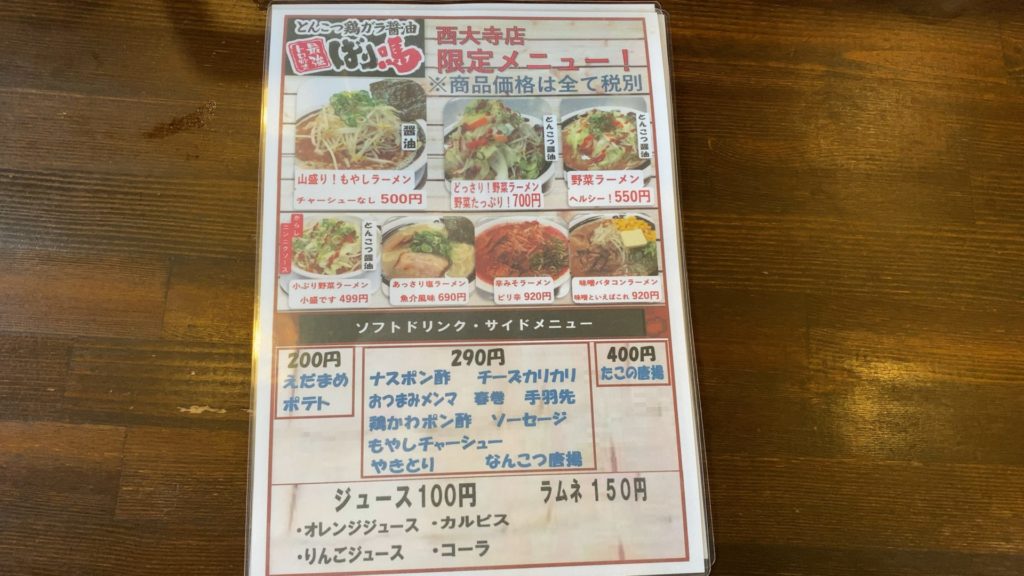 とんこつ鶏ガラ醤油
ばり馬
西大寺店
限定メニュー！
※商品価格は全て税別
醤油
山盛り！もやしラーメン
チャーシューなし 500円
とんこつ醤油
どっさり！野菜ラーメン
野菜たっぷり！700円
とんこつ醤油
野菜ラーメン
ヘルシー！550円
からし
ニンニクソース
とんこつ醤油
小ぶり野菜ラーメン
小盛です 499円
あっさり塩ラーメン
魚介風味 690円
辛みそラーメン
ピリ辛 920円
味噌バタコンラーメン
味噌といえばこれ 920円
ソフトドリンク・サイドメニュー
200円
えだまめ
ポテト
290円
ナスポン酢 チーズカリカリ
おつまみメンマ 春巻 手羽先
鶏かわポン酢 ソーセージ
もやしチャーシュー
やきとり なんこつ唐揚
400円
たこの唐揚
ジュース100円 ラムネ 150円
・オレンジジュース ・カルピス
・りんごジュース ・コーラ